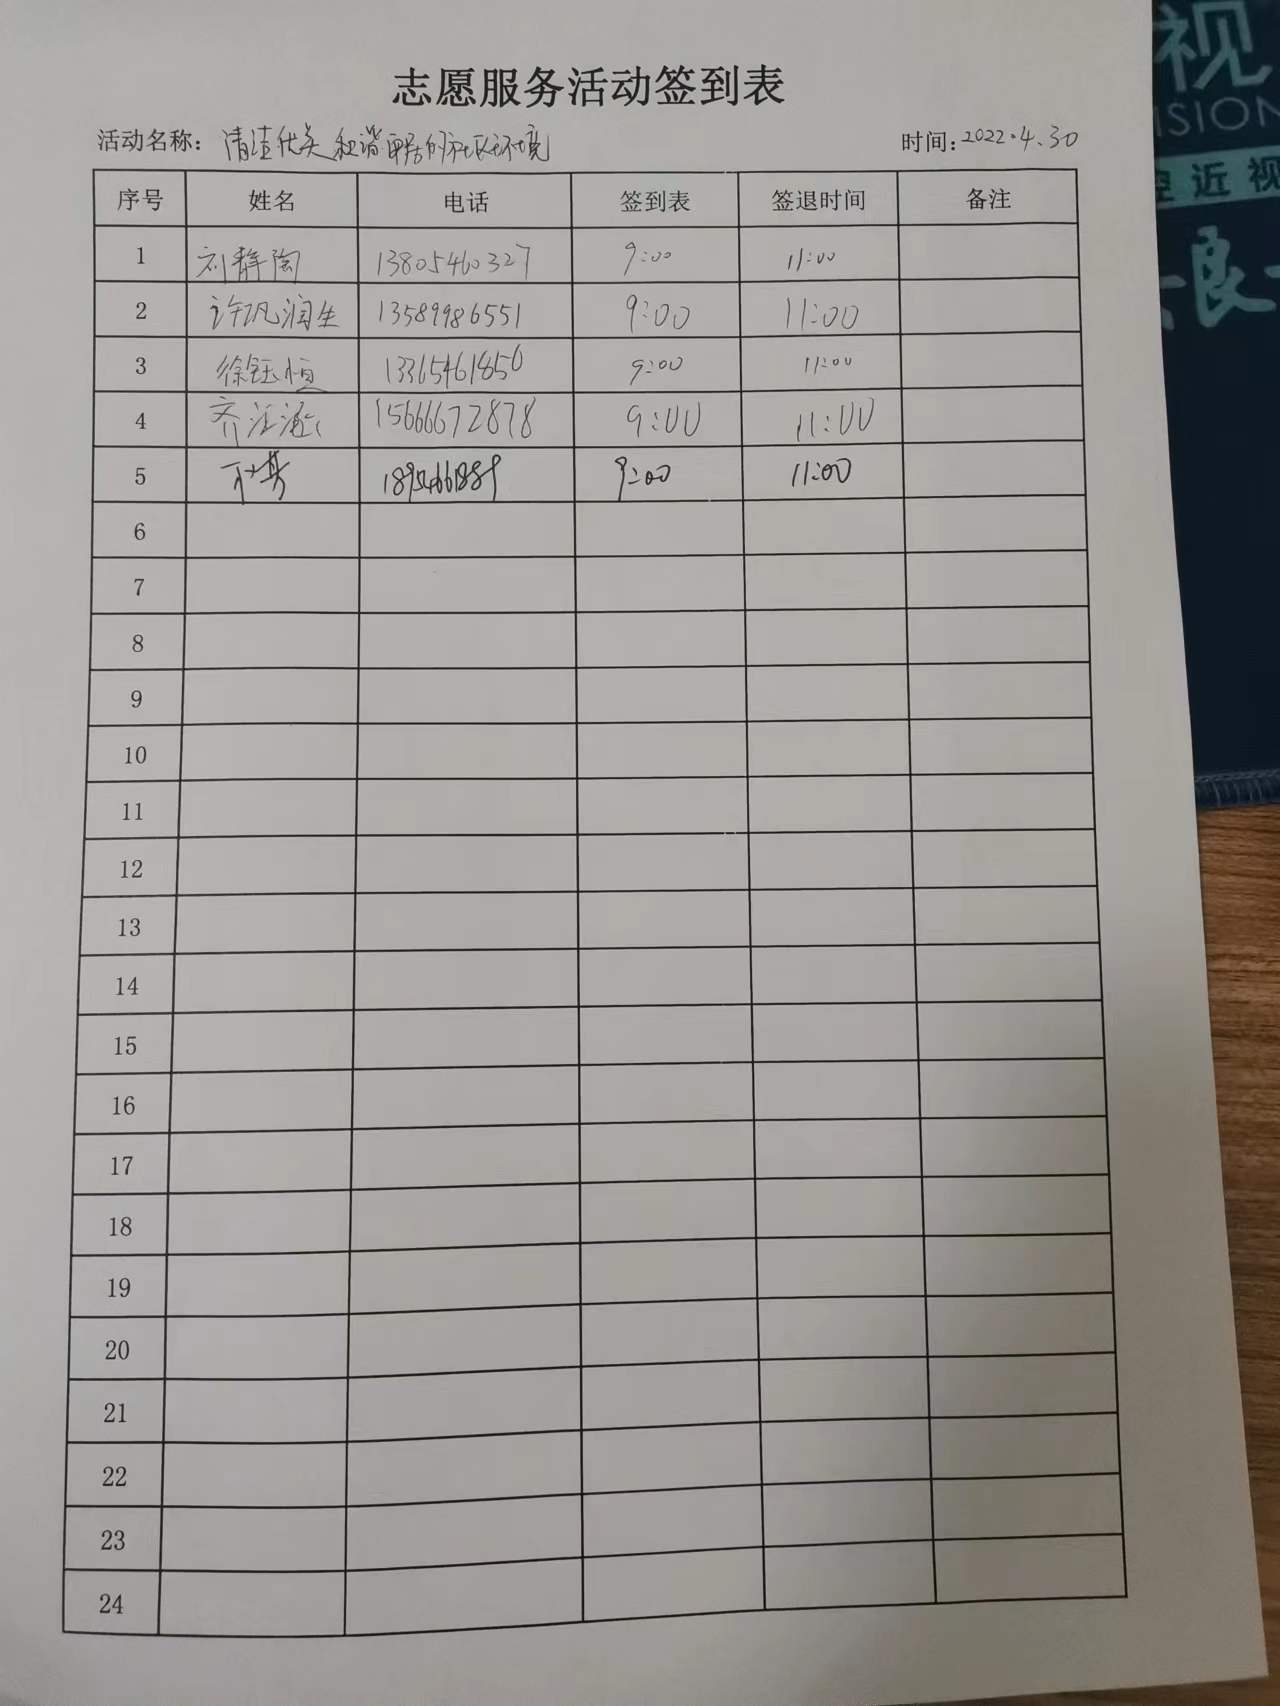 志愿服务活动签到表
活动名称：清洁优美 和谐 的社区环境
时间：2022.4.30
序号 姓名 电话 签到表 签退时间 备注
1 刘静陶 13805460327 9:00 11:00
2 许巩润生 13589986551 9:00 11:00
3 徐钰恒 13365461850 9:00 11:00
4 齐 15666672878 9:00 11:00
5 9:00 11:00
6
7
8
9
10
11
12
13
14
15
16
17
18
19
20
21
22
23
24
视
ISION
控近视
良